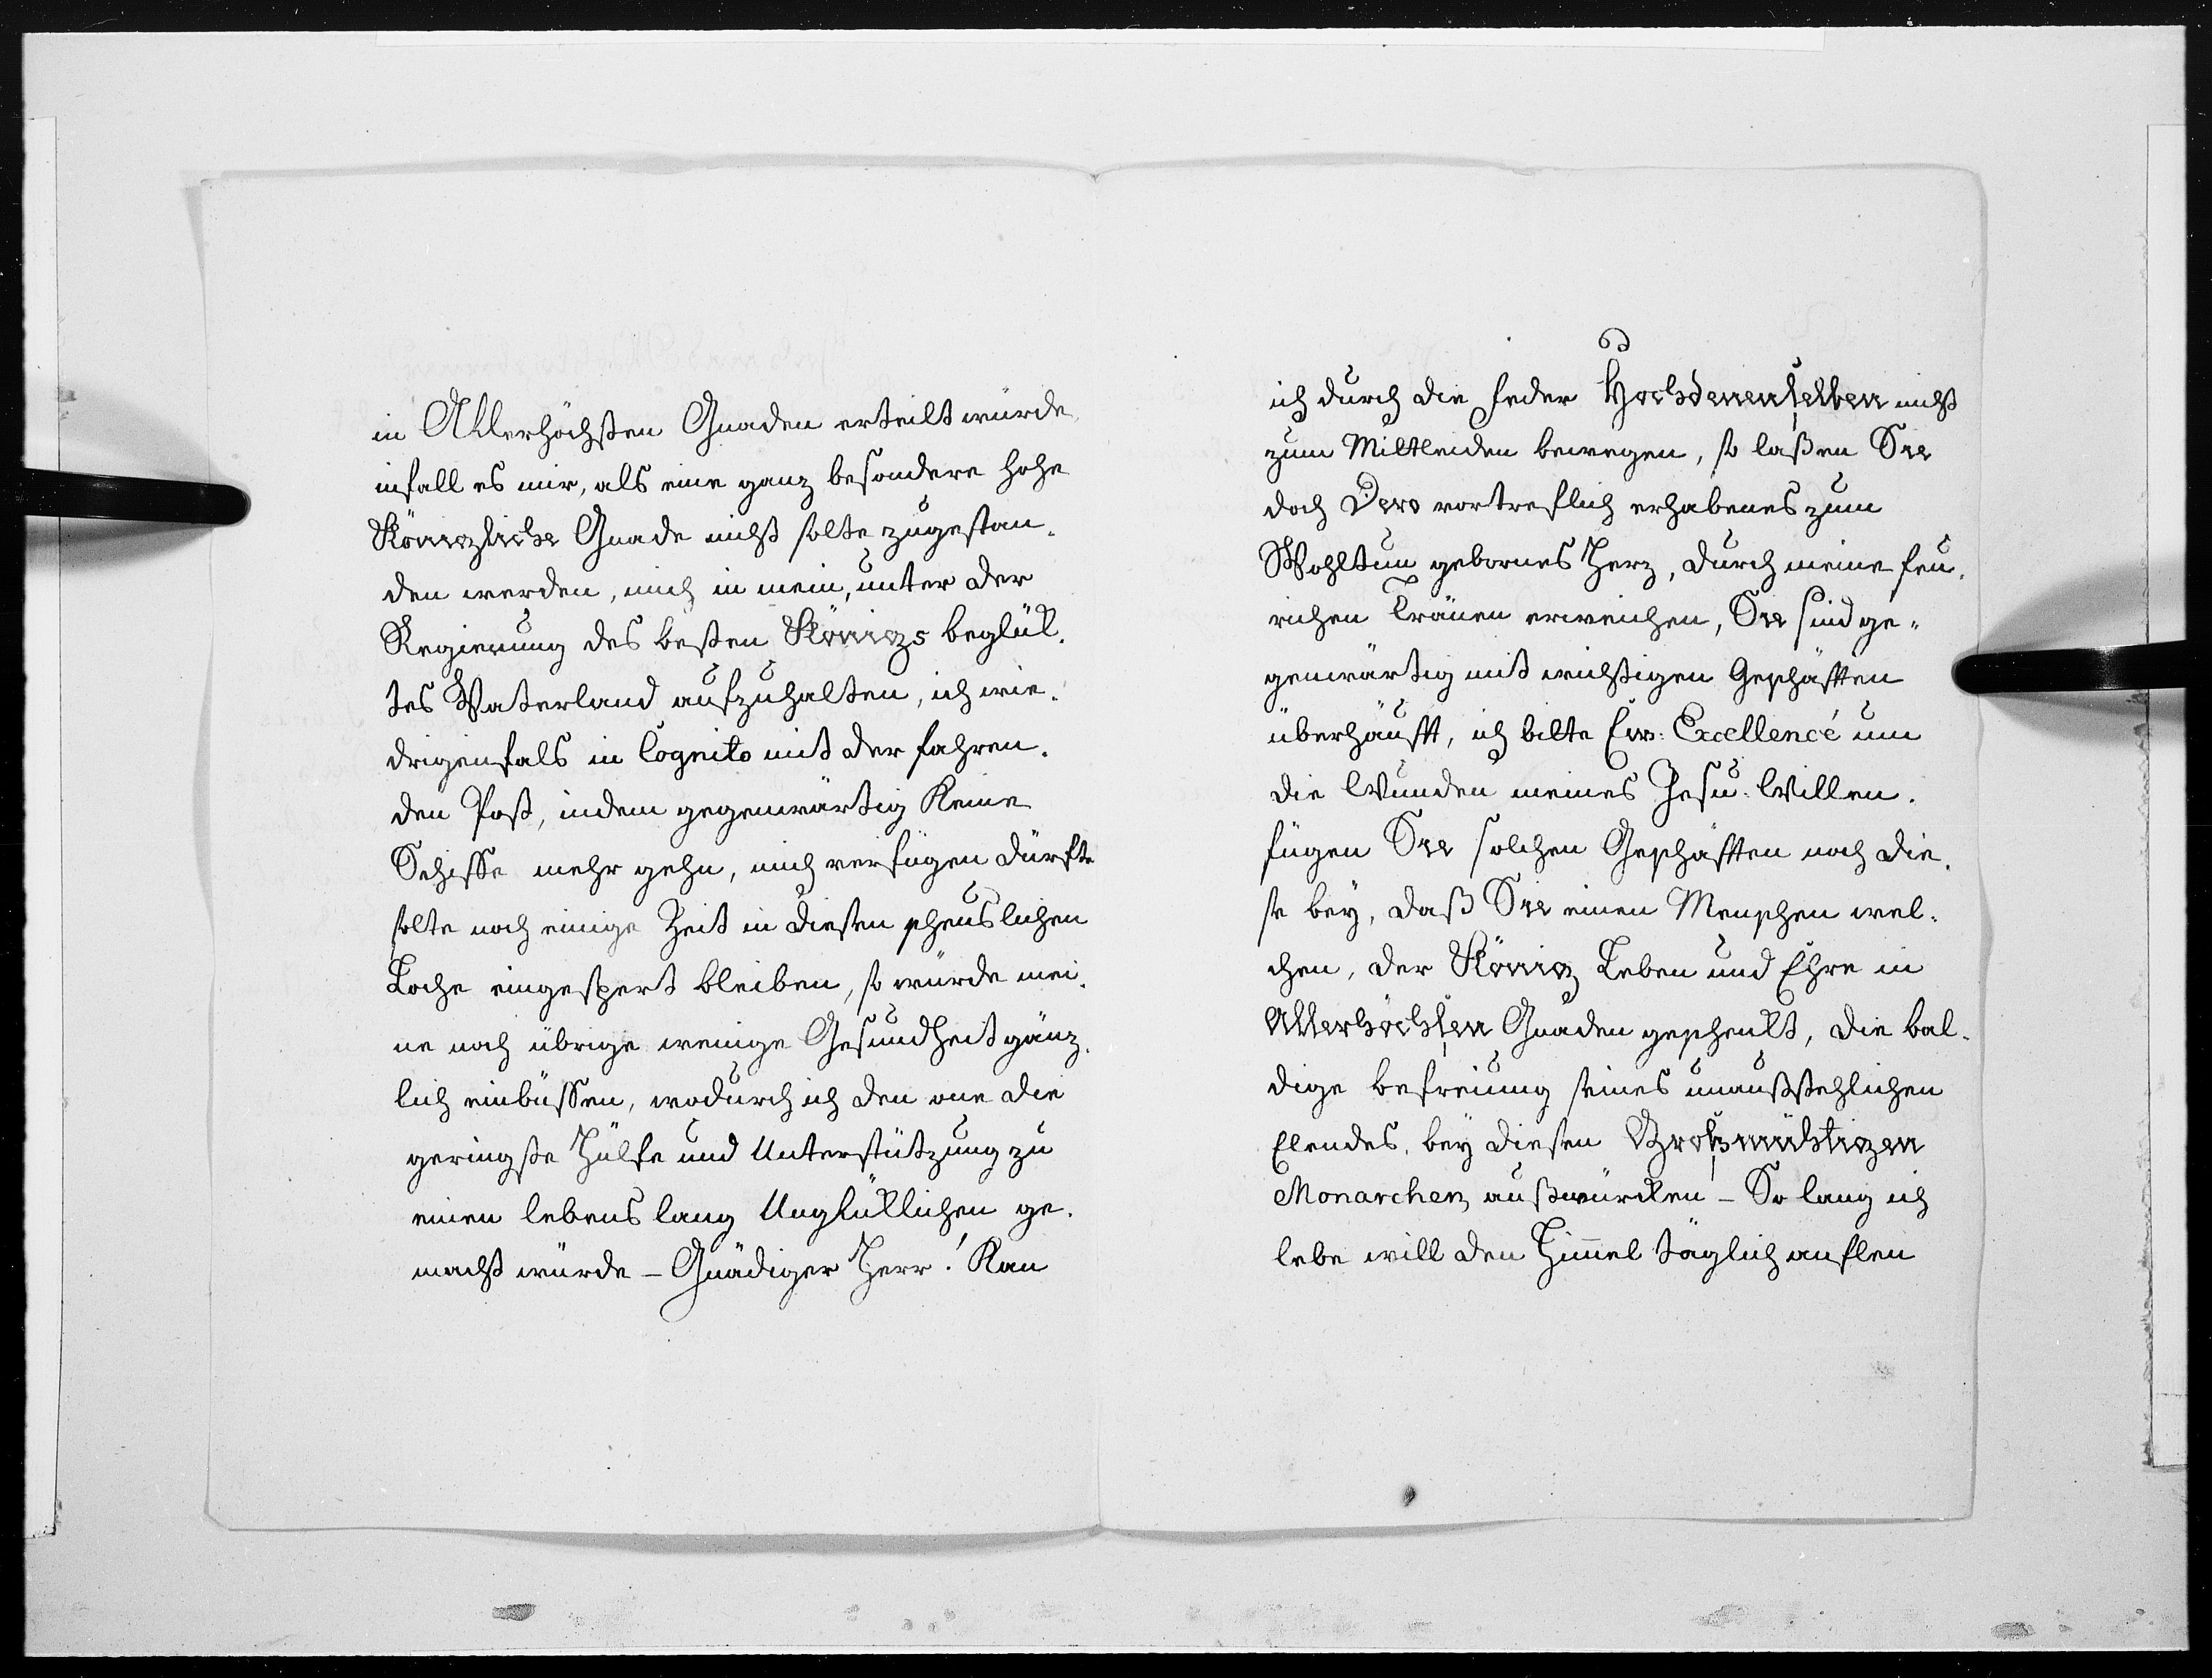 in Allerhöchsten Gnaden erteilt würde
infall es mir, als eine ganz besondere hohe
Königliche Gnade nicht solte zugestan.
den werden, mich in mein, unter der
Regierung des besten Königs beglük.
tes Vaterland aufzuhalten, ich wie.
drigenfals in Cognito mit der fahren.
den Post, indem gegenwärtig Keine
Schiffe mehr gehn, mich verfügen dürfte
solte noch einige Zeit in diesen scheuslichen
Loche eingespert bleiben, so würde mei.
ne noch übrige wenige Gesundheit gänz.
lich einbüssen, wodurch ich den one die
geringste Hülfe und Unterstützung zu
einen lebens lang Unglüklichen ge.
macht würde - Gnädiger Herr! Kan
ich durch die Feder Hochdenenselben nicht
zum Mittleiden bewegen, so laßen Sie
doch Dero vortreflich erhabenes zum
Wohltun gebornes Herz, durch meine feu.
richen Tränen erweichen, Sie sind ge„
genwärtig mit wichtigen Geschäfften
überhäufft, ich bitte Ew: Excellencé um
die Wunden meines Jesu: Willen.
fügen Sie solchen Geschäfften noch die.
se bey, daß Sie einen Menschen wel.
chen, der König Leben und Ehre in
Allerhöchsten Gnaden geschenkt, die bal.
dige befreiung seines unaußstehlichen
Elendes, bey diesen Großmühtigen
Monarchen außwürcken - So lang ich
lebe will den Himmel täglich anflen